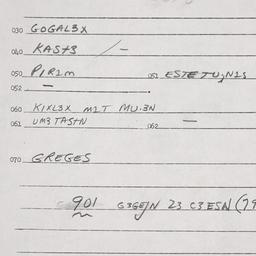 030 GOGAL3X
040 KAST3 / -
050 PIR1M 051 ESTETU,N1S
052 -
060 KIXL3X M1T MU:3N
061 UM3TASTN 062 -
070 GREGES
901 G3GE/N 23 C3ESN (79